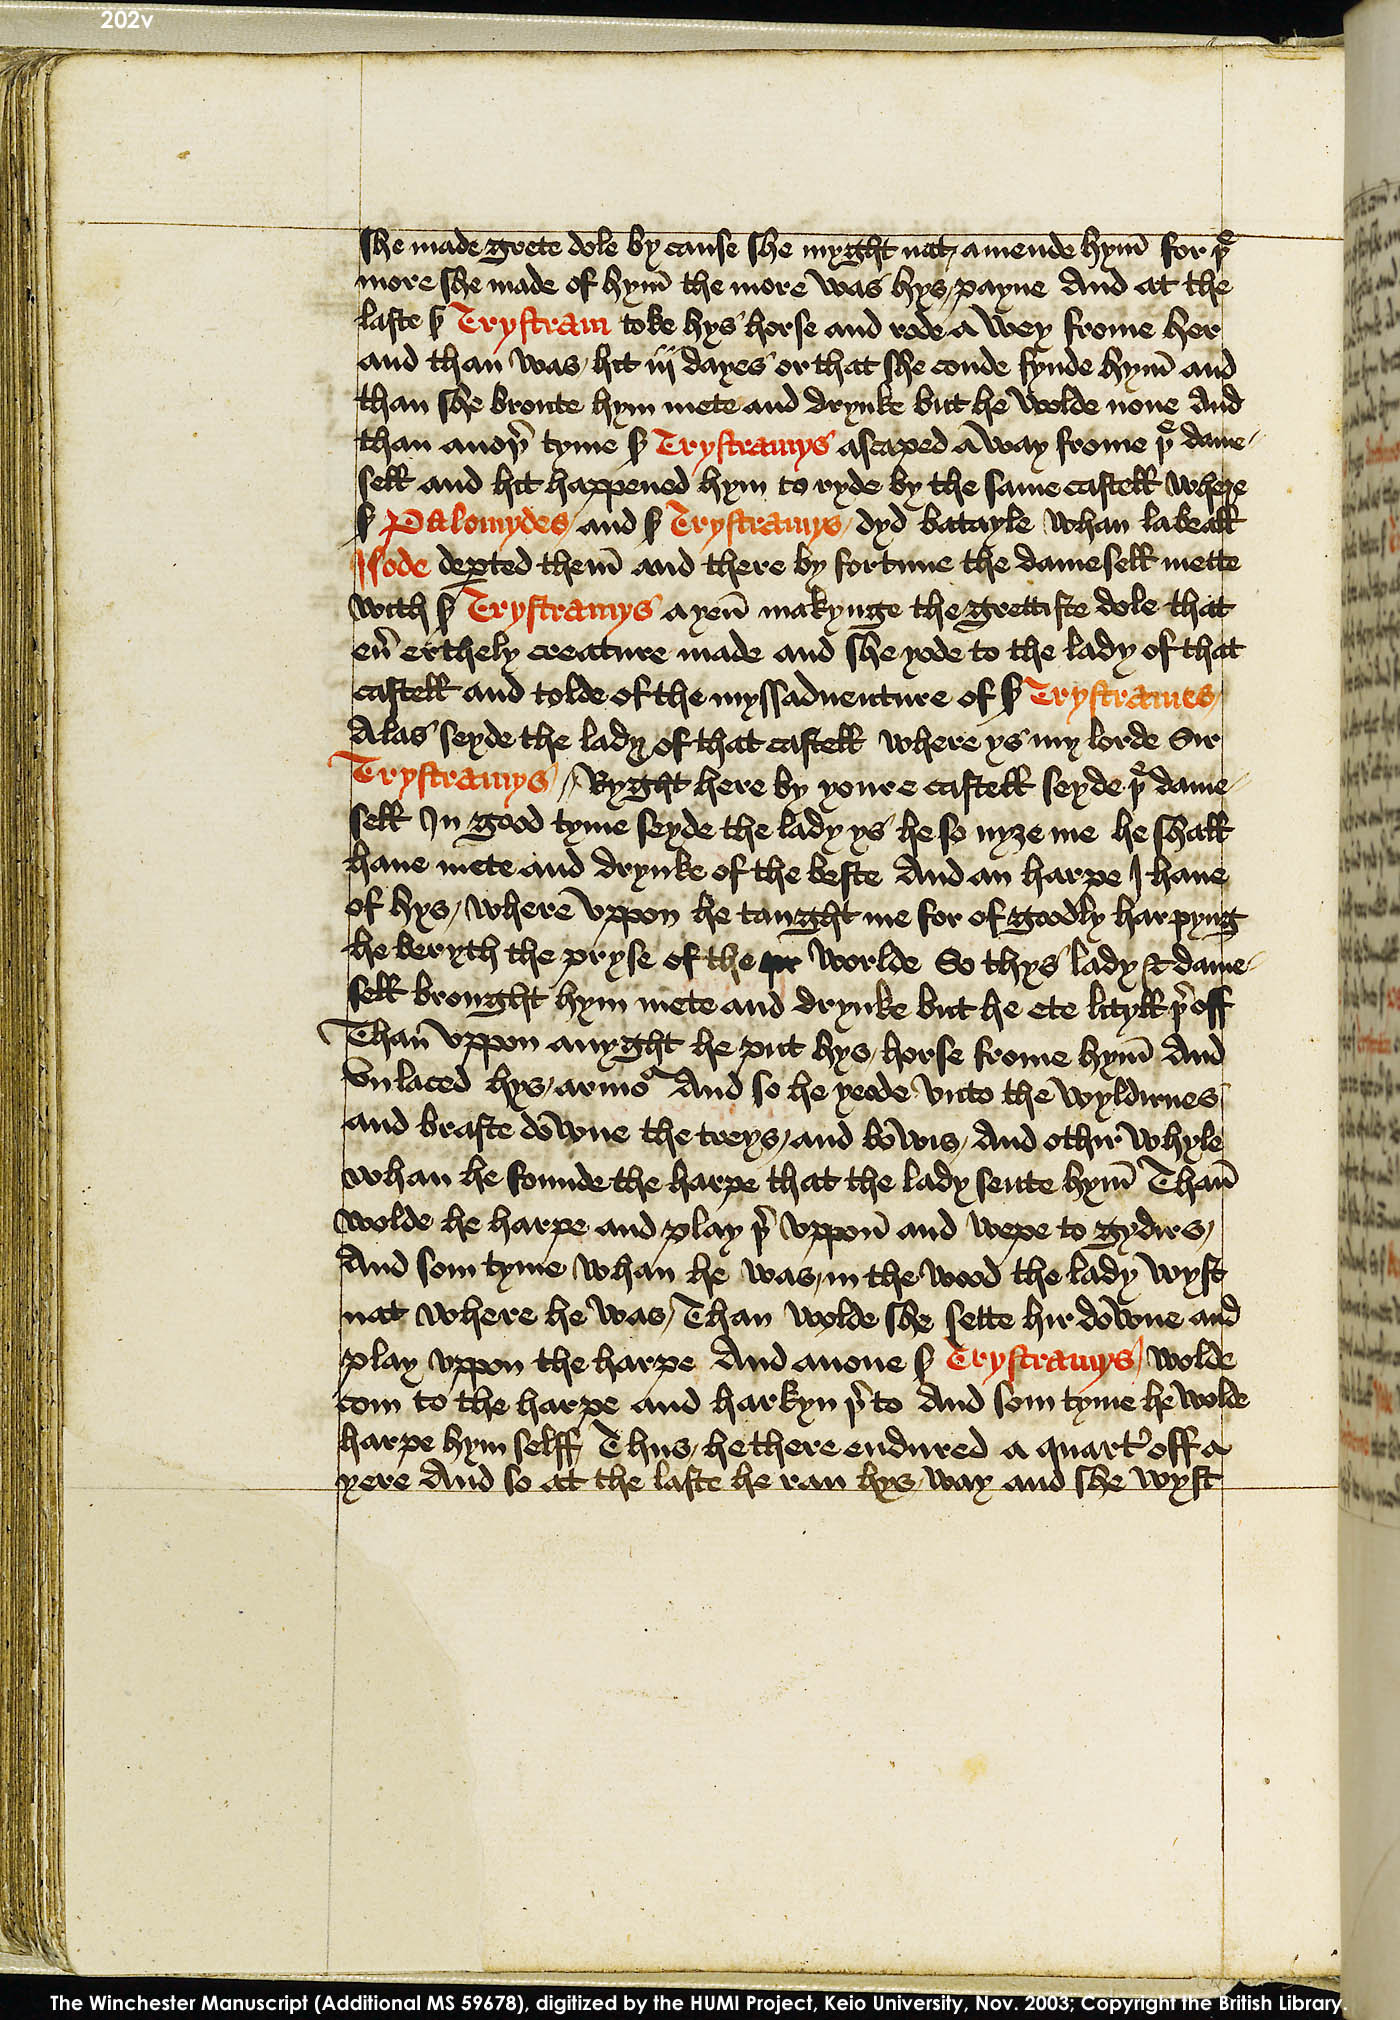 202v
she made grete dole by cause she myght nat amende hym̄ for þe
more she made of hym̄ the more was hys payne And at the
laste sʳ Trystram toke hys horse and rode a wey frome her
and than̄ was hit iij dayes or that she coude fynde hym̄ and
than she brouте hym mete and drynke but he wolde none And
than anoþʳ tyme sʳ Trystramys ascaped a way frome þe dame-
sell and hit happened hym to ryde by the same castell where
sʳ Palomydes and sʳ Trystramys dyd batayle whan labeall
Isode deꝑted them̄ and there by fortune the damesell mette
with sʳ Trystramys ayen̄ makynge the grettiste dole that
euʳ erthely creature made and she yode to the lady of that
castell and tolde of the myssaduenture of sʳ Trystrames
Alas seyde the lady of that castell where ys my lorde Sir
Trystramys // Ryght here by youre castell seyde þe dame-
sell In good tyme seyde the lady ys he so nyȝe me he shall
haue mete and drynke of the beste And an harpe I haue
of hys where vppon he taught me for of goodly harpyng
he beryth the pryse of the worlde So thys lady & dame-
sell brought hym mete and drynke but he ete lityll þʳoff
Than̄ vppon a nyght he put hys horse frome hym̄ And
vnlaced hys armoʳ And so he yeode vnto the wyldirnes
and braste downe the treys and bowis And othir whyle
whan he founde the harpe that the lady sente hym̄ Than̄
wolde he harpe and play þʳ vppon̄ and wepe to gydirs
And som tyme whan he was in the wood the lady wyst
nat where he was Than wolde she sette hir downe and
play vppon the harpe And anone sʳ Trystramys wolde
com to the harpe and harkyn þʳto And som tyme he wolde
harpe hym selff Thus he there endured a quartʳ off a
yere And so at the laste he ran hys way and she wyst
The Winchester Manuscript (Additional MS 59678), digitized by the HUMI Project, Keio University, Nov. 2003; Copyright the British Library.